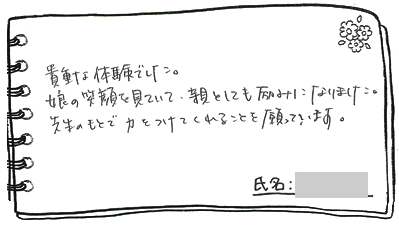 貴重な体験でした。
娘の笑顔を見ていて、親としても励みになりました。
先生のもとで力をつけてくれることを願っています。
氏名: